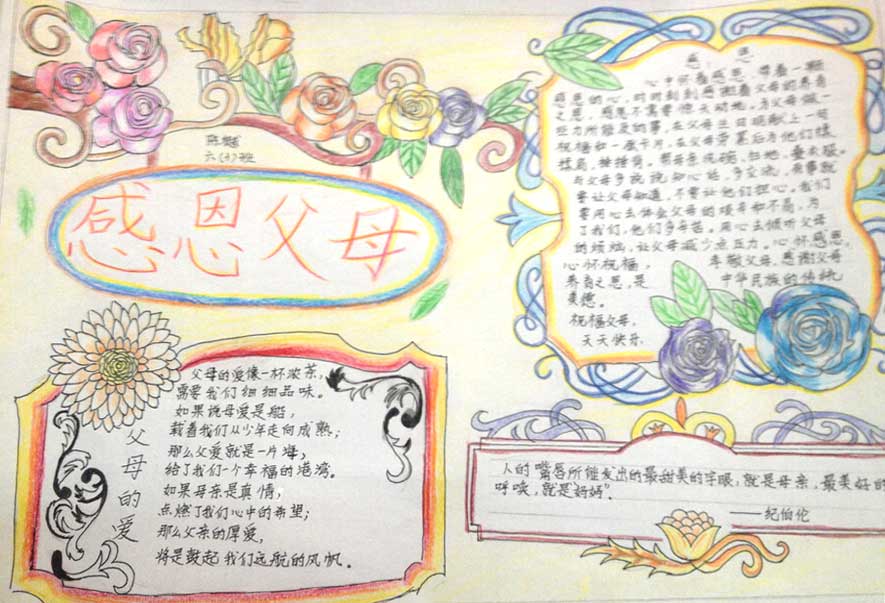 感恩父母
六(4)班
父母的爱
父母的爱像一杯浓茶，
需要我们细细品味。
如果说母爱是船，
载着我们从少年走向成熟；
那么父爱就是一片海，
给了我们一个幸福的港湾。
如果母亲是真情，
点燃了我们心中的希望；
那么父亲的厚爱，
将是鼓起我们远航的风帆。
感 恩
心中怀着感恩，带着一颗
感恩的心，时时刻刻感谢着父母的养育
之恩，感恩不需要惊天动地。为父母做一
些力所能及的事，在父母生日时献上一句
祝福和一张卡片，在父母劳累后为他们揉
揉肩，捶捶背。帮母亲洗碗、扫地、叠衣服。
与父母多说说知心话，多交流，有事就
要让父母知道，不要让他们担心。我们
要用心去体会父母的艰辛和不易，为
了我们，他们多辛苦。用心去倾听父母
的烦恼，让父母减少点压力。心怀感恩，
心怀祝福， 孝敬父母，感谢父母
养育之恩，是 中华民族的传统
美德。
祝福父母，
天天快乐
人的嘴唇所能发出的最甜美的字眼，就是母亲，最美好的
呼唤，就是“妈妈”。
——纪伯伦